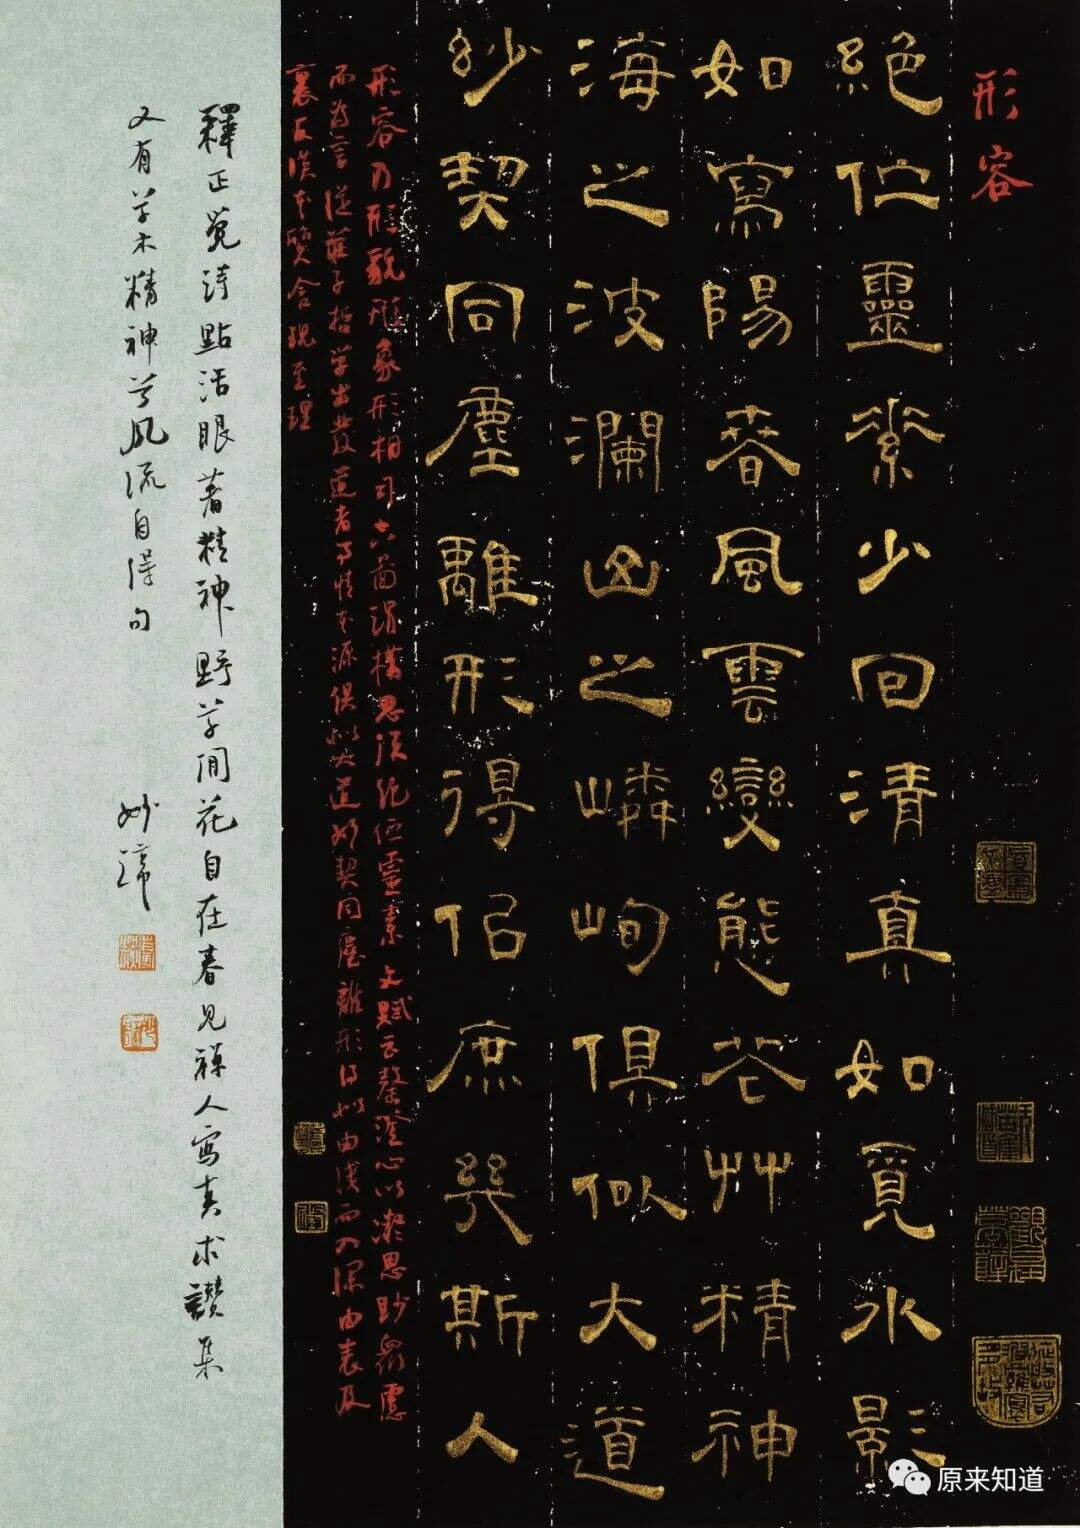 形容
絕伫靈素少回清真如覓水影
如寫陽春風雲變態花艸精神
海之波瀾山之嶙峋俱似大道
玅契同塵離形得佀庶幾斯人
形容乃形貌形象形相司空圖謂構思須絕伫靈素文賦云罄澄心以凝思眇眾慮
而為言從莊子哲學出發道者事情本源俱似大道妙契同塵離形得似由淺而入深由表及
裏反本質含現至理
釋正覺詩點活眼著精神野草閒花自在春見禪人寫真求讚集
又有草木精神兮風流自得句
妙諦
原来知道